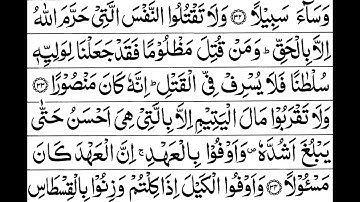 وَسَآءَ سَبِيۡلًا ﴿۳۲﴾ وَلَا تَقۡتُلُوا النَّفۡسَ الَّتِىۡ حَرَّمَ اللّٰهُ
اِلَّا بِالۡحَـقِّ‌ ؕ وَمَنۡ قُتِلَ مَظۡلُوۡمًا فَقَدۡ جَعَلۡنَا لِـوَلِيِّهٖ
سُلۡطٰنًا فَلَا يُسۡرِفْ فِّى الۡقَتۡلِ‌ ؕ اِنَّهٗ كَانَ مَنۡصُوۡرًا ﴿۳۳﴾
وَلَا تَقۡرَبُوۡا مَالَ الۡيَتِيۡمِ اِلَّا بِالَّتِىۡ هِىَ اَحۡسَنُ حَتّٰى
يَبۡلُغَ اَشُدَّهٗ‌ ۖ وَاَوۡفُوۡا بِالۡعَهۡدِ‌ ۚ اِنَّ الۡعَهۡدَ كَانَ
مَسۡـُٔوۡلًا ﴿۳۴﴾ وَاَوۡفُوا الۡـكَيۡلَ اِذَا كِلۡتُمۡ وَزِنُوۡا بِالۡقِسۡطَاسِ